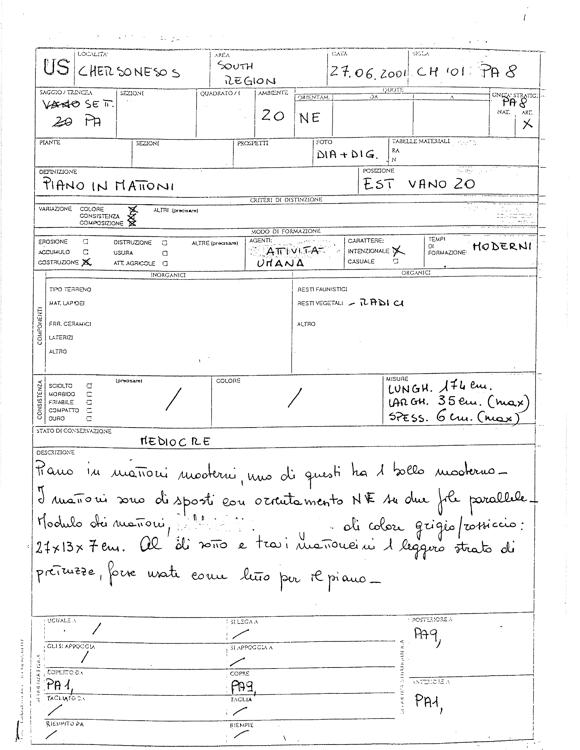 US
LOCALITA'
CHERSONESOS
AREA
SOUTH
REGION
DATA
27.06.2001
SIGLA
CH '01 PA 8
SAGGIO / TRINCEA
VANO SETT.
20 PA
SEZIONI
QUADRATO / I
AMBIENTE
20
QUOTE
ORIENTAM.
DA
A
NE
UNITA' STRATIG.
PA 8
NAT. ART.
X
PIANTE
SEZIONI
PROSPETTI
FOTO
DIA + DIG.
TABELLE MATERIALI
RA
N
DEFINIZIONE
PIANO IN MATTONI
POSIZIONE
EST VANO 20
CRITERI DI DISTINZIONE
VARIAZIONE COLORE X ALTRI (precisare)
CONSISTENZA X
COMPOSIZIONE X
MODO DI FORMAZIONE
EROSIONE DISTRUZIONE ALTRE (precisare)
ACCUMULO USURA
COSTRUZIONE X ATT. AGRICOLE
AGENTI:
ATTIVITA'
UMANA
CARATTERE:
INTENZIONALE X
CASUALE
TEMPI
DI
FORMAZIONE:
MODERNI
COMPONENTI
INORGANICI
TIPO TERRENO
MAT. LAPIDEI
FRR. CERAMICI
LATERIZI
ALTRO
ORGANICI
RESTI FAUNISTICI
RESTI VEGETALI - RADICI
ALTRO
CONSISTENZA
SCIOLTO
MORBIDO
FRIABILE
COMPATTO
DURO
(precisare)
/
COLORE
/
MISURE
LUNGH. 174 cm.
LARGH. 35 cm. (max)
SPESS. 6 cm. (max)
STATO DI CONSERVAZIONE
MEDIOCRE
DESCRIZIONE
Piano in mattoni moderni, uno di questi ha 1 bollo moderno -
I mattoni sono disposti con orientamento NE su due file parallele -
Modulo dei mattoni, di colore grigio/rossiccio:
27x13x7 cm. Al di sotto e tra i mattoncini 1 leggero strato di
pietruzze, forse usate come letto per il piano -
UGUALE A
/
SI LEGA A
/
GLI SI APPOGGIA
/
SI APPOGGIA A
/
COPERTO DA
PA1,
COPRE
PA9,
TAGLIATO DA
/
TAGLIA
/
RIEMPITO DA
/
RIEMPIE
/
POSTERIORE A
PA9,
ANTERIORE A
PA1,